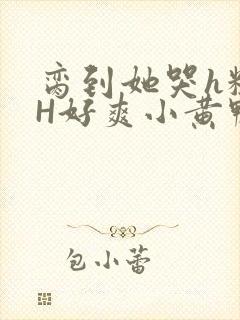 脔到她哭h粗
H好爽小黄鸭
包小蕾